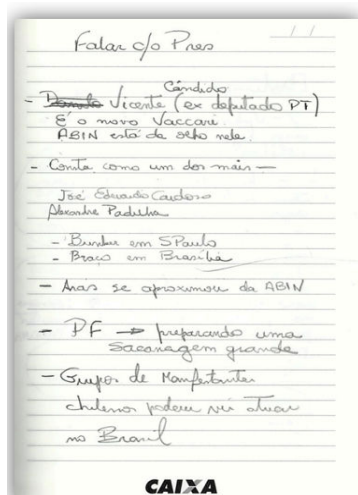 Falar c/o Pres
Cândido
- Vicente (ex deputado PT)
É o novo Vaccari.
ABIN está de olho nele.
- Conta como um dos mais —
José Eduardo Cardozo
Alexandre Padilha
- Bunker em SPaulo
- Braço em Brasília
- se aproximou da ABIN
- PF → preparando uma
sacanagem grande
- Grupos de Manifestantes
chilenos podem vir atuar
no Brasil
CAIXA